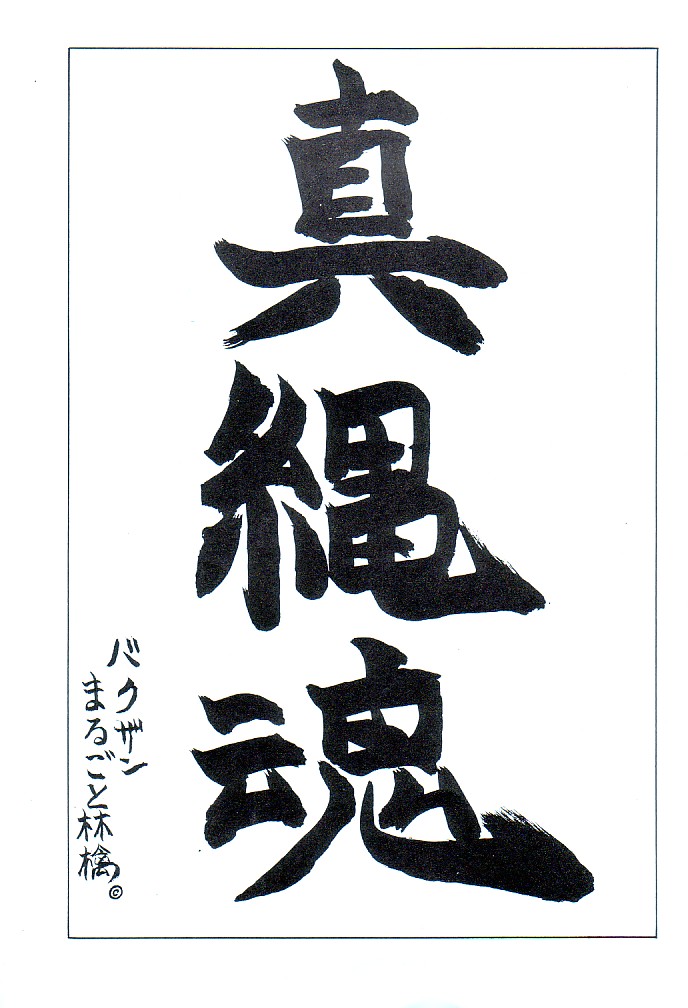 真縄魂
バクザン
まるごと林檎
©